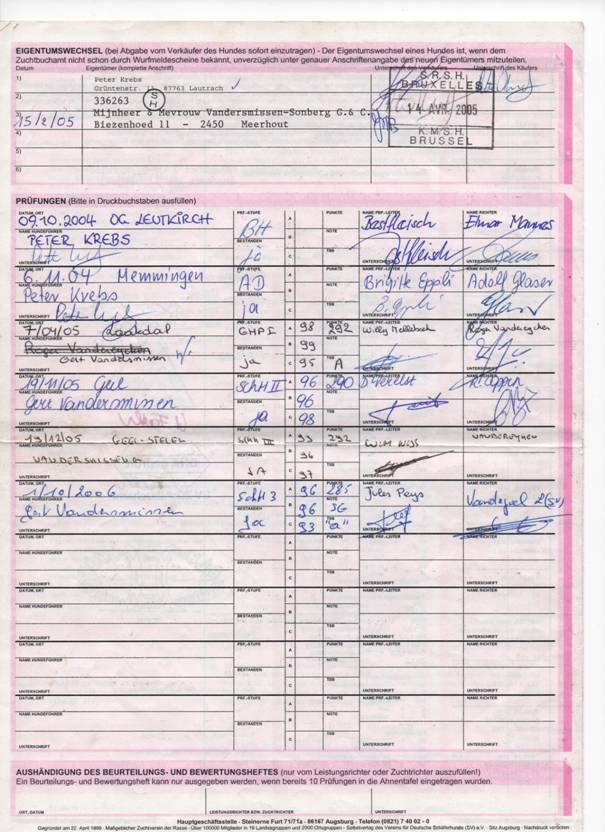 EIGENTUMSWECHSEL (bei Abgabe vom Verkäufer des Hundes sofort einzutragen) - Der Eigentumswechsel eines Hundes ist, wenn dem
Zuchtbuchamt nicht schon durch Wurfmeldescheine bekannt, unverzüglich unter genauer Anschriftenangabe des neuen Eigentümers mitzuteilen.
Datum Eigentümer (komplette Anschrift) Unterschrift des Verkäufers Unterschrift des Käufers
1) Peter Krebs
Grüntenstr. 87763 Lautrach
2) 336263 S H
S.R.S.H.
BRUXELLES
14 AVR. 2005
K.M.S.H.
BRUSSEL
3) Mijnheer & Mevrouw Vandersmissen-Sonberg G.& C.
15/2/05 Biezenhoed 11 - 2450 Meerhout
5)
6)
PRÜFUNGEN (Bitte in Druckbuchstaben ausfüllen)
DATUM, ORT PRF.-STUFE A PUNKTE NAME PRF.-LEITER NAME RICHTER
09.10.2004 OG LEUTKIRCH BH Elmar Mannes
NAME HUNDEFÜHRER BESTANDEN B NOTE
PETER KREBS ja
UNTERSCHRIFT C TSB UNTERSCHRIFT UNTERSCHRIFT
6.11.04 Memmingen AD Brigitte Eppli Adolf Glaser
Peter Krebs ja
7/04/05 GHP I A 98 292 Willy
Roger Vandereycken B 99
Gert Vandersmissen ja C 95 A
19/11/05 Geel SchH II A 96 290 D Verelst
Gert Vandersmissen B 96
ja C 98
19/12/05 GEEL-STELEN SchH III A 99 292 WIM WISS VANDEREYKEN
VANDERSMISSEN G B 96
JA C 97
1/10/2006 SchH 3 A 96 285 Jules Peys
Gert Vandersmissen B 96 SG
Ja C 93 "a"
DATUM, ORT PRF.-STUFE A PUNKTE NAME PRF.-LEITER NAME RICHTER
NAME HUNDEFÜHRER BESTANDEN B NOTE
UNTERSCHRIFT C TSB UNTERSCHRIFT UNTERSCHRIFT
DATUM, ORT PRF.-STUFE A PUNKTE NAME PRF.-LEITER NAME RICHTER
NAME HUNDEFÜHRER BESTANDEN B NOTE
UNTERSCHRIFT C TSB UNTERSCHRIFT UNTERSCHRIFT
DATUM, ORT PRF.-STUFE A PUNKTE NAME PRF.-LEITER NAME RICHTER
NAME HUNDEFÜHRER BESTANDEN B NOTE
UNTERSCHRIFT C TSB UNTERSCHRIFT UNTERSCHRIFT
DATUM, ORT PRF.-STUFE A PUNKTE NAME PRF.-LEITER NAME RICHTER
NAME HUNDEFÜHRER BESTANDEN B NOTE
UNTERSCHRIFT C TSB UNTERSCHRIFT UNTERSCHRIFT
AUSHÄNDIGUNG DES BEURTEILUNGS- UND BEWERTUNGSHEFTES (nur vom Leistungsrichter oder Zuchtrichter auszufüllen!)
Ein Beurteilungs- und Bewertungsheft kann nur ausgegeben werden, wenn bereits 10 Prüfungen in die Ahnentafel eingetragen wurden.
ORT, DATUM LEISTUNGSRICHTER BZW. ZUCHTRICHTER UNTERSCHRIFT
Hauptgeschäftsstelle - Steinerne Furt 71/71a - 86167 Augsburg - Telefon (0821) 7 40 02 - 0
Gegründet am 22. April 1899 - Maßgeblicher Zuchtverein der Rasse - Über 100000 Mitglieder in 19 Landesgruppen und 2000 Ortsgruppen - Selbstverlag des Vereins für Deutsche Schäferhunde (SV) e.V. - Sitz Augsburg - Nachdruck verboten